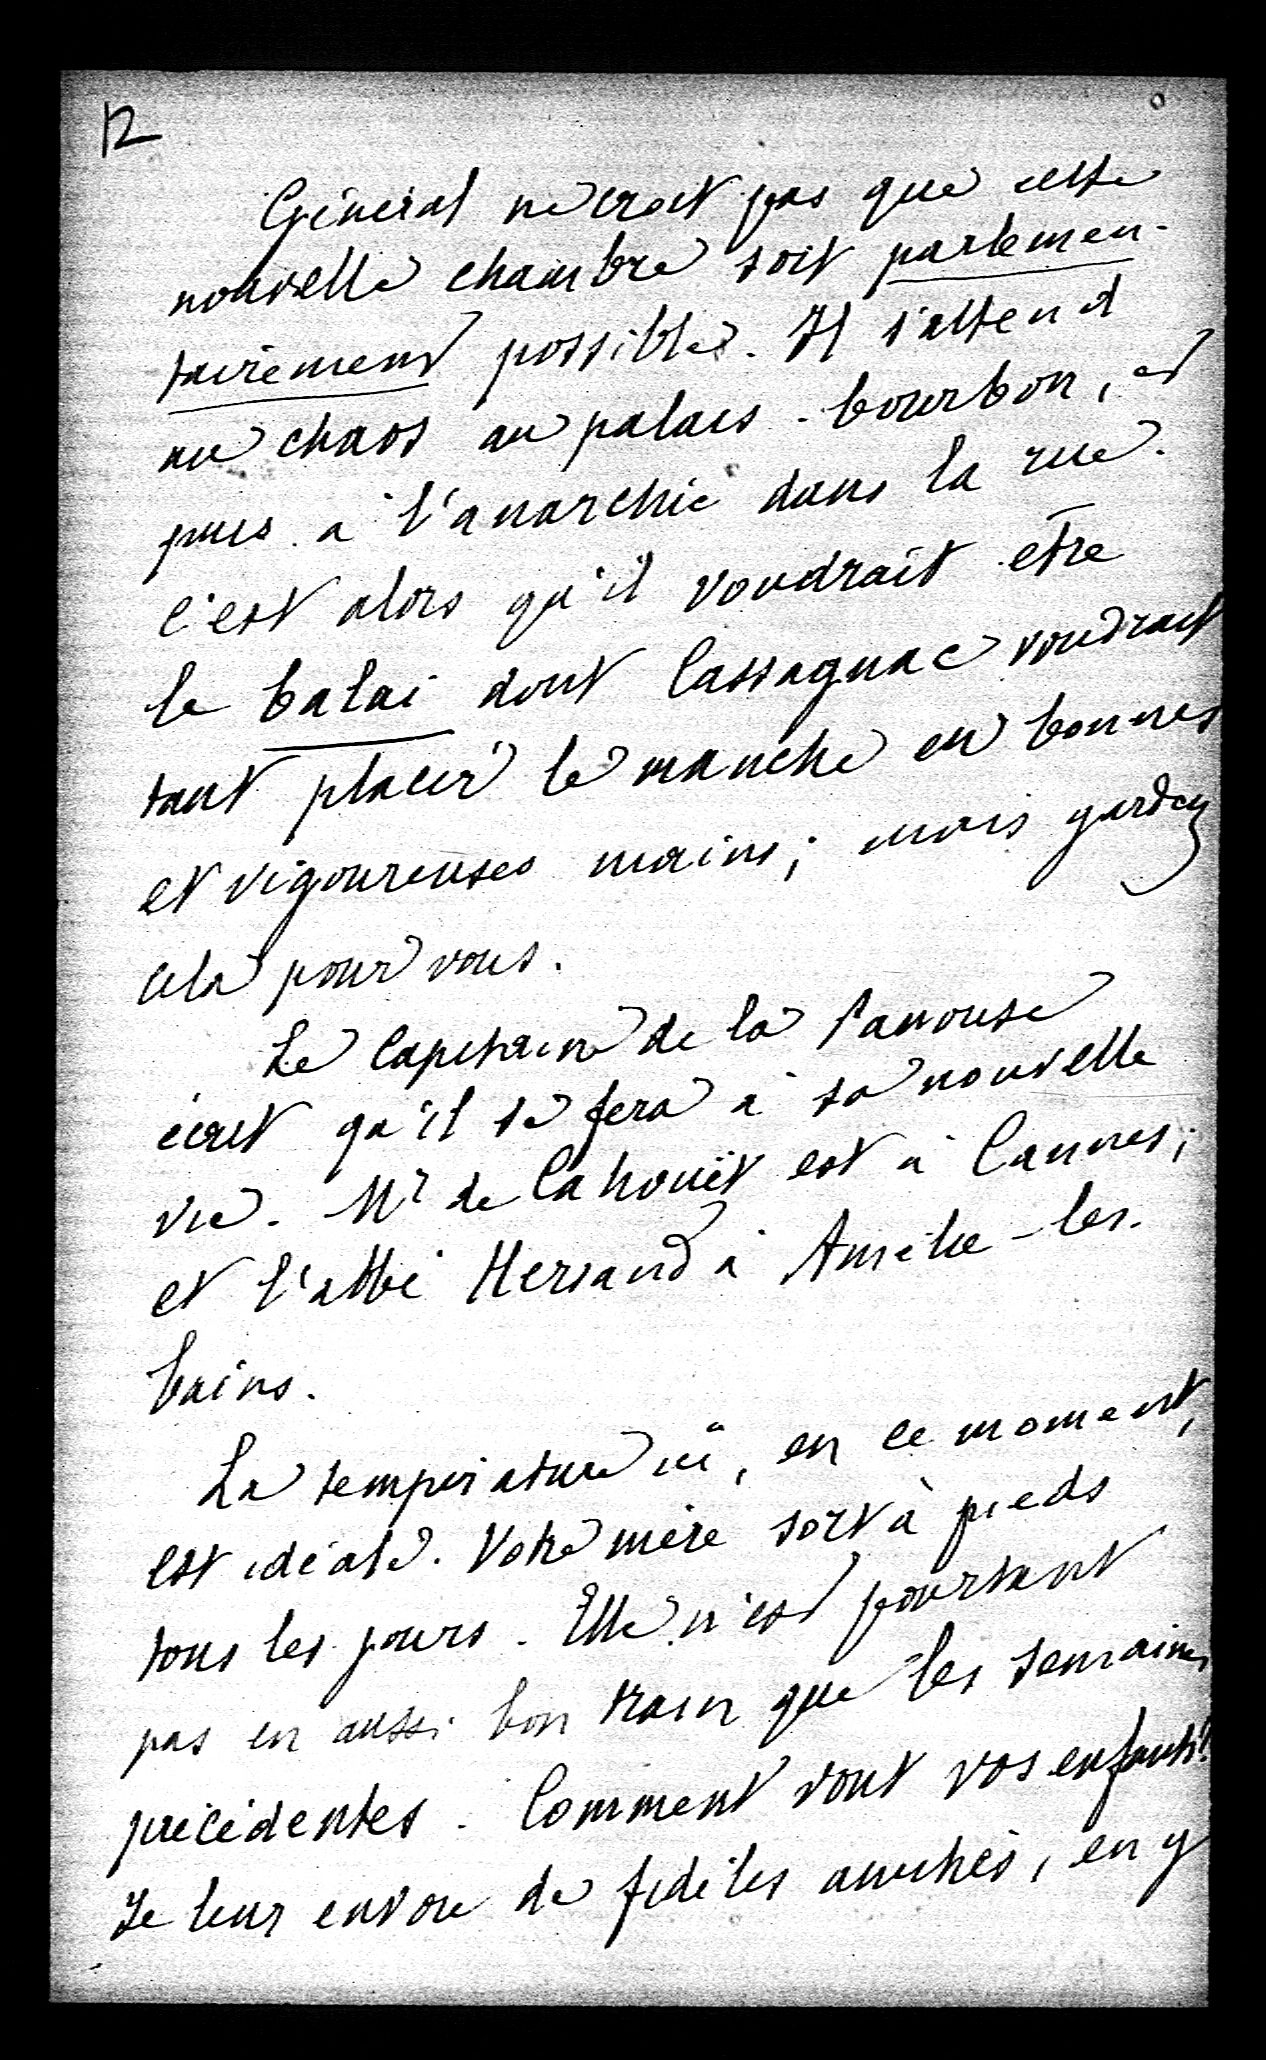 12
Général ne croit pas que cette
nouvelle chambre soit parlemen-
tairement possible. Il s'attend
au chaos au palais-bourbon, et
puis à l'anarchie dans la rue.
C'est alors qu'il voudrait être
le balai dont Cassagnac voudrait
tant placer le manche en bonnes
et vigoureuses mains; mais gardez
cela pour vous.
Le Capitaine de la Panouse
écrit qu'il se fera à sa nouvelle
vie. Mr de Cahouët est à Cannes;
et l'abbé Hersand à Amélie-les-
bains.
La température ici, en ce moment,
est idéale. Votre mère sort à pieds
tous les jours. Elle n'est pourtant
pas en aussi bon train que les semaines
précédentes. Comment vont vos enfants?
Je leur envoie de fidèles amitiés, en y